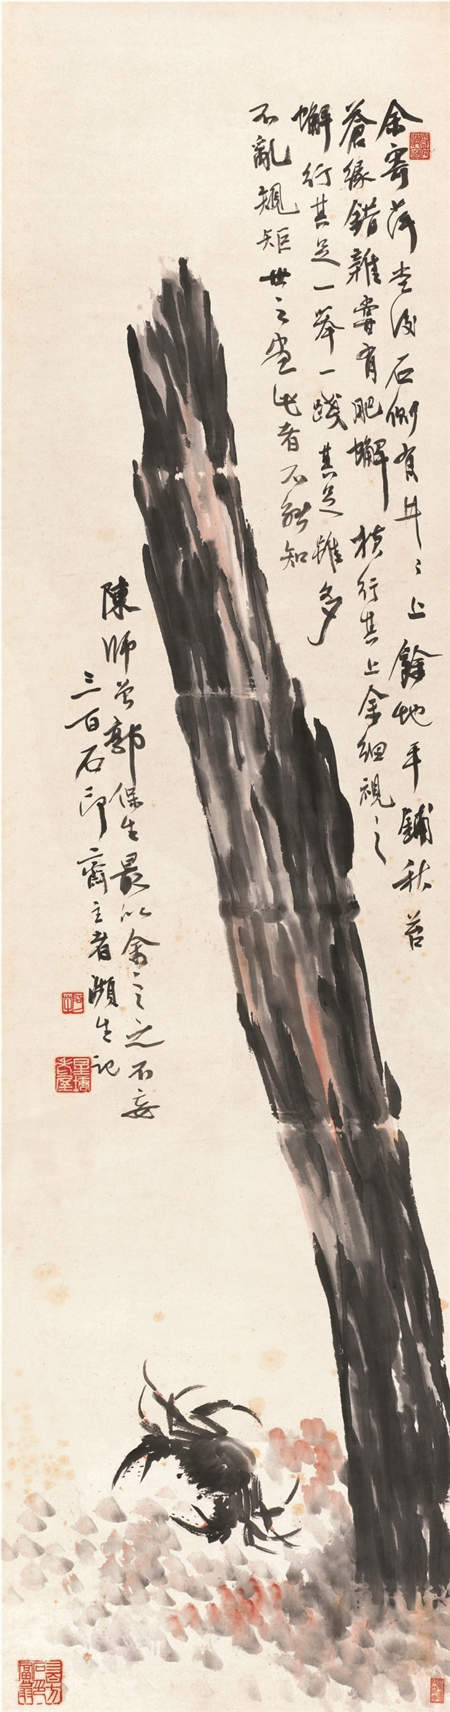 余寄萍堂後石側有井〻上餘地平鋪秋苔
蒼緑錯雜嘗有肥蠏橫行其上余細視之
蠏行其足一舉一踐其足雖多
不亂規矩世之畫此者不能知
陳師曾郭保生最以余之言不妄
三百石印齋主者瀕生記